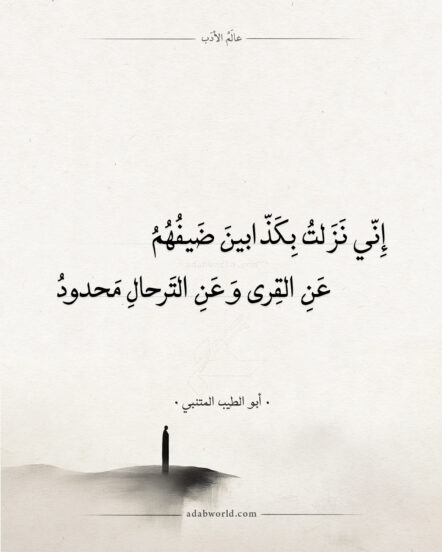 عالَمُ الأدَب
إِنّي نَزَلتُ بِكَذّابينَ ضَيفُهُمُ
عَنِ القِرى وَعَنِ التَرحالِ مَحدودُ
• أبو الطيب المتنبي •
adabworld.com